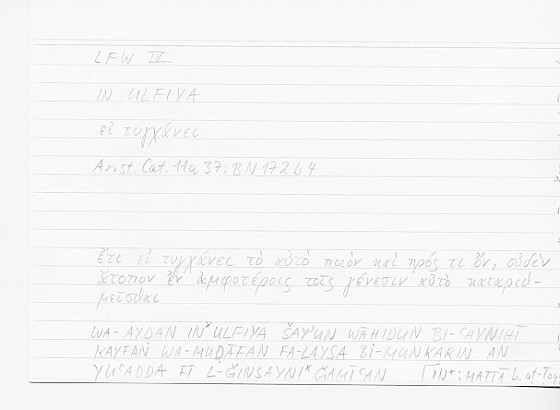 LFW IV
IN ULFIYA
εἰ τυγχάνει
Arist. Cat. 11a 37: BN 172 b 4
ἔτι εἰ τυγχάνει τὸ αὐτὸ ποιὸν καὶ πρός τι ὄν, οὐδὲν
ἄτοπον ἐν ἀμφοτέροις τοῖς γένεσιν αὐτὸ καταριθ-
μεῖσθαι
WA-AYḌAN INˣ ULFIYA ŠAYʾUN WĀḤIDUN BI-ʿAYNIHĪ
KAYFAN WA-MUḌĀFAN FA-LAYSA BI-MUNKARIN AN
YUʿADDA FĪ L-ǦINSAYNIˣ ǦAMĪʿAN [INˣ: MATTĀ b.